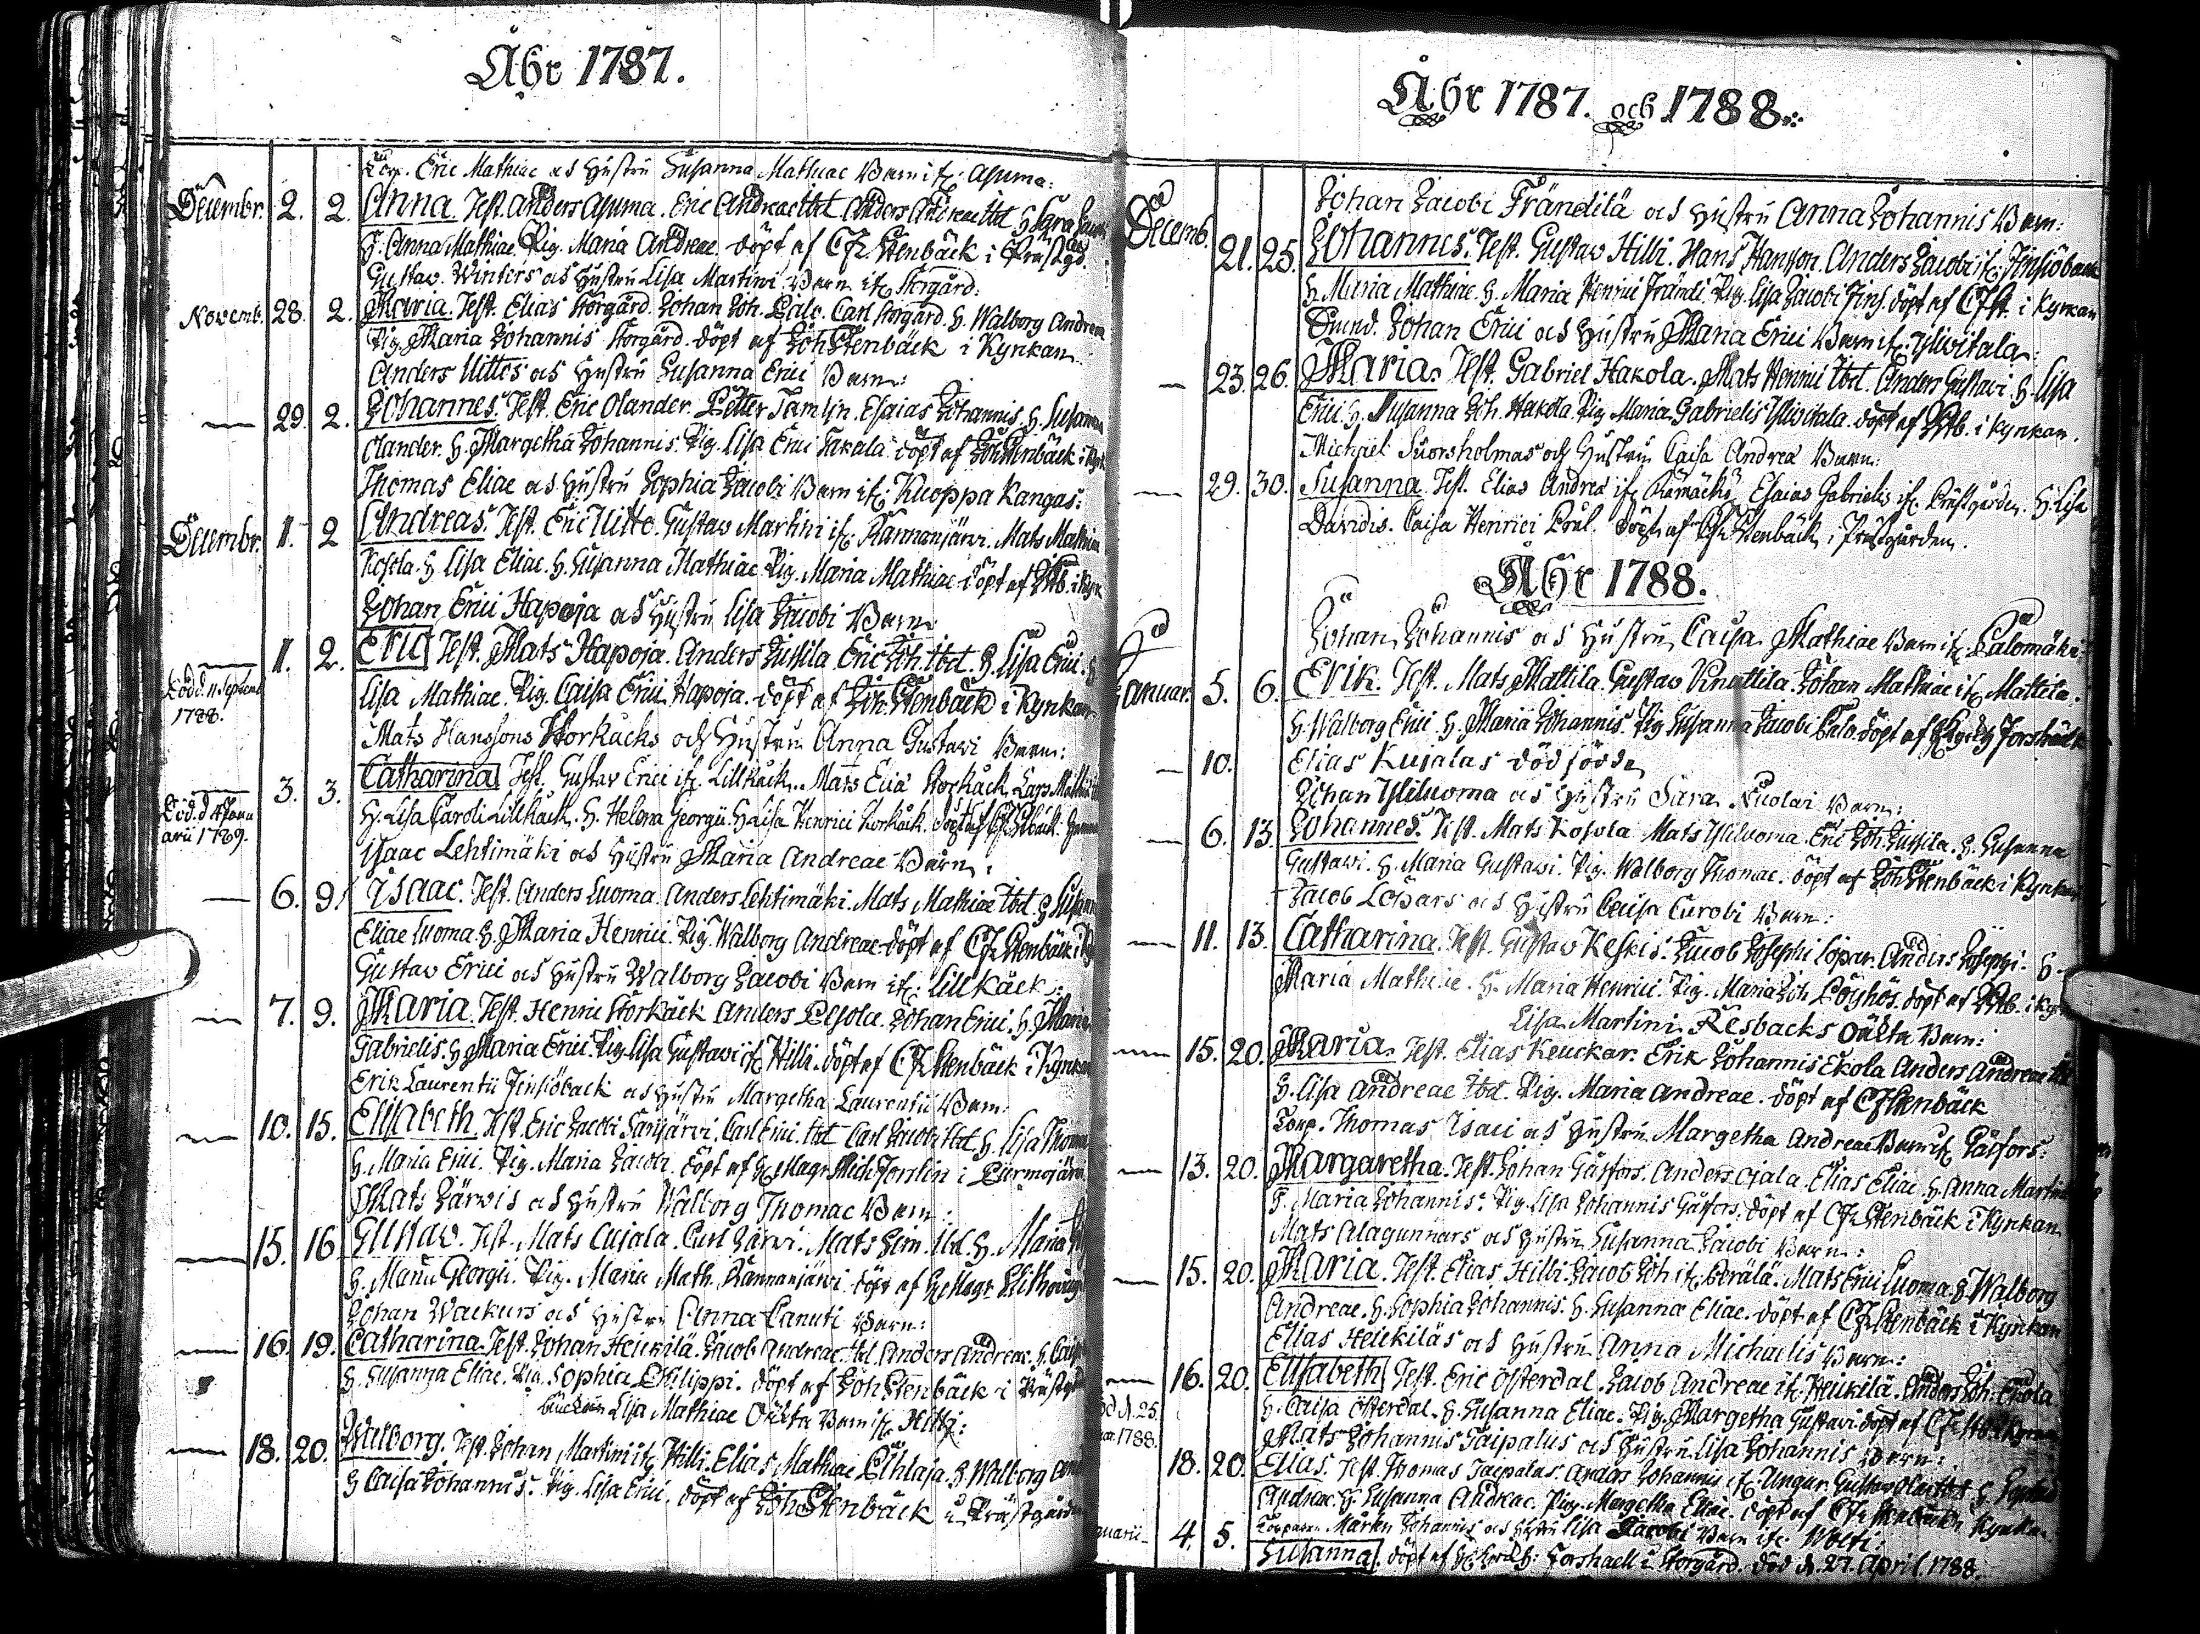 Åhr 1787.
Corp. Eric Mathiae och Hustru Susanna Mathiae Barn if. Asuma:
Decembr. 2. 2. Anna. Test. Anders Asuma. Eric Andreae ibid. Anders Andreae ibid. H.
F. Anna Mathiae. Pig. Maria Andreae. döpt af C. F. Stenbäck i Prästgd.
Gustav Winters och Hustru Lisa Martini Barn if. Storgård:
Novemb. 28. 2. Maria. Test. Elias Storgård. Johan Joh. Palo. Carl Storgård. H. Walborg Andreae
Pig. Maria Johannis Storgård. döpt af Joh. Stenbäck i Kyrkan.
Anders Uittos och Hustru Susanna Erici Barn:
29. 2. Johannes. Test. Eric Olander. Petter Tamlin. Esaias Johannis. H. Susanna
Olander. H. Margetha Johannis. Pig. Lisa Erici Takala. döpt af Joh. Stenbäck i
Thomas Eliae och Hustru Sophia Jacobi Barn if. Kuoppa Kangas:
Decembr. 1. 2 Andreas. Test. Eric Uitto. Gustaw Martini if. Kannanjärvi. Mats Mathiae
Kosola. H. Lisa Eliae. H. Susanna Mathiae. Pig. Maria Mathiae. döpt af Stb. i Kyrk
Johan Erici Hapoja och Hustru Lisa Jacobi Barn
1. 2. Eric Test. Mats Hapoja. Anders Jussila. Eric Joh. ibid. H. Lisa Erici. H
Död d. 11 Septemb 1788.
Lisa Mathiae. Pig. Caisa Erici Hapoja. döpt af Joh. Stenbäck i Kyrkan
Mats Hanssons Storkåcks och Hustru Anna Gustavi Barn:
3. 3. Catharina Test. Gustav Erici if. Lillkåck. Mats Storkåck. Lars
Död. d 4 Janu arii 1789.
H. Lisa Caroli Lillkåck. H. Helena Georgii. H. Lisa Henrici Storkåck. döpt af
Isaac Lehtimäki och Hustru Maria Andreae Barn:
6. 9. Isaac. Test. Anders Luoma. Anders Lehtimäki. Mats Mathiae ibid. H. Susan
Eliae Luoma. H. Maria Henrici. Pig. Walborg Andreae. döpt af C. F. Stenbäck i
Gustav Erici och Hustru Walborg Jacobi Barn if. Lillkåck:
7. 9. Maria. Test. Henric Storkåck. Anders Pesola. Johan Erici. H. Maria
Gabrielis. H. Maria Erici. Pig. Lisa Gustavi if. Hilli. döpt af C. F. Stenbäck i Kyrkan
Erik Laurentii Finsiöback och Hustru Margetha Laurentii Barn:
10. 15. Elisabeth. Test. Eric Jacobi Sarijärvi. Carl Erici ibid. Carl Jacobi ibid. H. Lisa Thomae
H. Maria Erici. Pig. Maria Jacobi. döpt af H. Magr. Mich. Forslin i Purmojärvi
Mats Järvis och Hustru Walborg Thomae Barn:
15. 16 Gustav. Test. Mats Cujala. Carl Järvi. Mats Sim. ibid. H. Maria
H. Maria Georgii. Pig. Maria Math. Kannanjärvi. döpt af H. Magr.
Johan Wackurs och Hustru Anna Canuti Barn:
16. 19. Catharina. Test. Johan Heickilä. Jacob Andreae ibd. Anders Andreae. H. Caisa
H. Susanna Eliae. Pig. Sophia Philippi. döpt af Joh. Stenbäck i Prästgd
Lisa Mathiae Oäkta Barn if. Hilli:
18. 20. Walborg. Test. Johan Martini if. Hilli. Elias Mathiae Pihlaja. H. Walborg
H. Caisa Johannis. Pig. Lisa Erici. döpt af Joh. Stenbäck i Prästgården
Åhr 1787. och 1788.
Johan Jacobi Frändilä och Hustru Anna Johannis Barn:
Decemb. 21. 25. Johannes. Test. Gustaw Hilli. Hans Hansson. Anders Jacobi if. Finsiöback
H. Maria Mathiae. H. Maria Henrici Frändi. Pig. Lisa Jacobi Fins. döpt af C. F. St. i Kyrkan
Johan Erici och Hustru Maria Erici Barn if. Yliwitala:
23. 26. Maria. Test. Gabriel Hakola. Mats Henrici ibd. Anders Gustavi. H. Lisa
Erici. H. Susanna Joh. Hakola. Pig. Maria Gabrielis Yliwitala. döpt af Stb. i Kyrkan.
Michael Suorsholmas och Hustru Caisa Andreae Barn:
29. 30. Susanna. Test. Elias Andreae if. Rämäckö. Esaias Gabrielis if. Prästgården. H. Lisa
Davidis. Caisa Henrici Poul. Döpt af C. F. Stenbäck i Prästgården.
Åhr 1788.
Johan Johannis och Hustru Caisa Mathiae Barn if. Palomäki:
Januar. 5. 6. Erik. Test. Mats Mattila. Gustav Knuttila. Johan Mathiae if. Mattila.
H. Walborg Erici. H. Maria Johannis. Pig. Susanna Jacobi Palo. döpt af
10. Elias Kujalas dödfödde
Johan Yliluoma och Hustru Sara Nicolai Barn:
6. 13. Johannes. Test. Mats Kosola. Mats Yliluoma. Eric Joh. Jussila. H. Susanna
Gustavi. H. Maria Gustavi. Pig. Walborg Thomae. döpt af Joh. Stenbäck i Kyrkan
Jacob Lopars och Hustru Caisa Jacobi Barn:
11. 13. Catharina. Test. Gustav Keskis. Jacob Josephi Lopar. Anders Josephi. H.
Maria Mathiae. H. Maria Henrici. Pig. Maria Joh. Pöyhös. döpt af Stb. i Kyrk
Lisa Martini Kesbacks Oäkta Barn:
15. 20. Maria. Test. Elias Keuckar. Erik Johannis Ekola. Anders Andreae ibd
H. Lisa Andreae ibd. Pig. Maria Andreae. döpt af C. F. Stenbäck
Corp. Thomas Isaci och Hustru Margetha Andreae Barn if. Påsfors:
13. 20. Margaretha. Test. Johan Gåsfors. Anders Ojala. Elias Eliae. H. Anna Martini
F. Maria Johannis. Pig. Lisa Johannis Gåsfors. döpt af C. F. Stenbäck i Kyrkan
Mats Alagunnars och Hustru Susanna Jacobi Barn:
15. 20. Maria. Test. Elias Hilli. Jacob Joh. if. Perälä. Mats Erici Luoma. H. Walborg
Andreae. H. Sophia Johannis. H. Susanna Eliae. döpt af C. F. Stenbäck i Kyrkan
Elias Heickiläs och Hustru Anna Michaelis Barn:
16. 20. Elisabeth Test. Eric Österdal. Jacob Andreae if. Heickilä. Anders Joh. Ekola
d. 25. 1788.
H. Caisa Österdal. H. Susanna Eliae. Pig. Margetha Gustavi. döpt af C. F.
Mats Johannis Taipalus och Hustru Lisa Johannis Barn:
18. 20. Elias. Test. Thomas Taipalus. Anders Johannis if. Ungar. Gustav H. Sophia
Andreae. H. Susanna Andreae. Pig. Margetha Eliae. döpt af C. F. Stenbäck Kyrkan
4. 5. Corporal Mårten Johannis och Hustru Lisa Jacobi Barn if. Wolti:
Susanna. döpt af Forshaell i Storgård. död d. 27. April 1788.